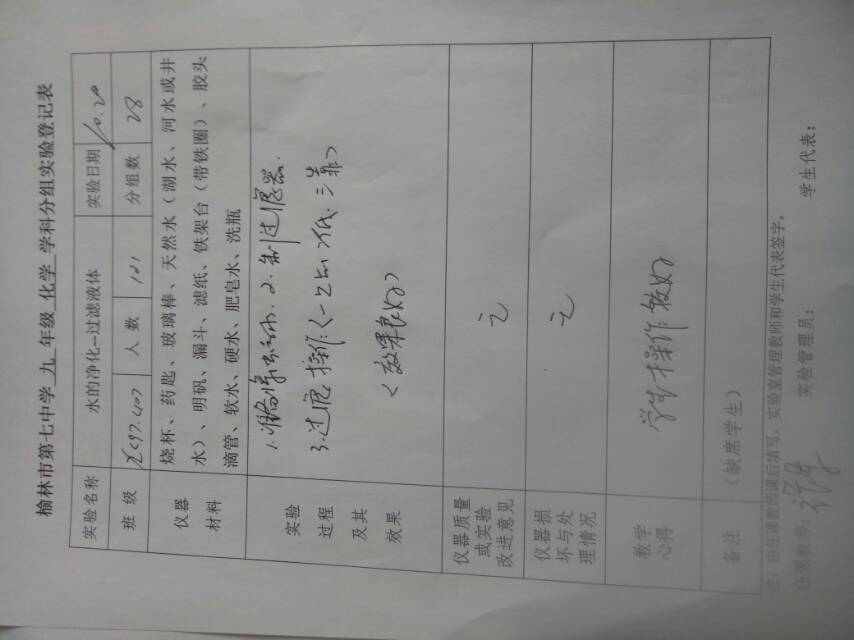 榆林市第七中学 九 年级 化学 学科分组实验登记表
实验名称 水的净化--过滤液体 实验日期 10.20
班 级 人 数 101 分组数 28
仪器材料 烧杯、药匙、玻璃棒、天然水（湖水、河水或井
水）、明矾、漏斗、滤纸、铁架台（带铁圈）、胶头
滴管、软水、硬水、肥皂水、洗瓶
实验
过程
及其
效果
1.准备 2.制过滤器.
3.过滤操作<一 二低.三靠>
<效果良好>
仪器质量
或实验
改进意见
无
仪器损
坏与处
理情况
无
教学
心得
学生操作较好
备注 （缺席学生）
注：由任课教师课后填写，实验室管理教师和学生代表签字。
任课教师： 实验管理员： 学生代表：